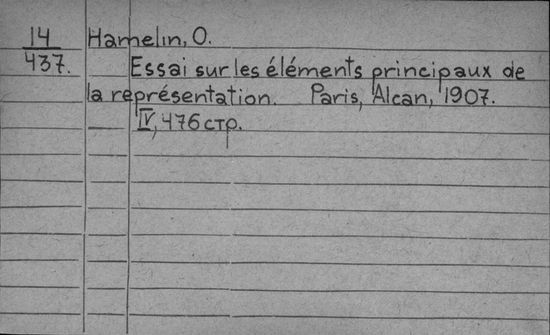 14 Hamelin, O.
437. Essai sur les éléments principaux de
la représentation. Paris, Alcan, 1907.
IV, 476 стр.